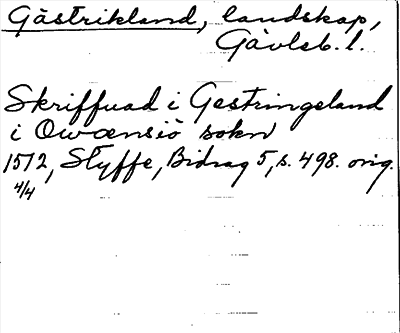 Gästrikland, landskap,
Gävleb. l.
Skriffuad i Gestringeland
i Owænsiö sokn
1512, Styffe, Bidrag 5, s. 498. orig.
4/4